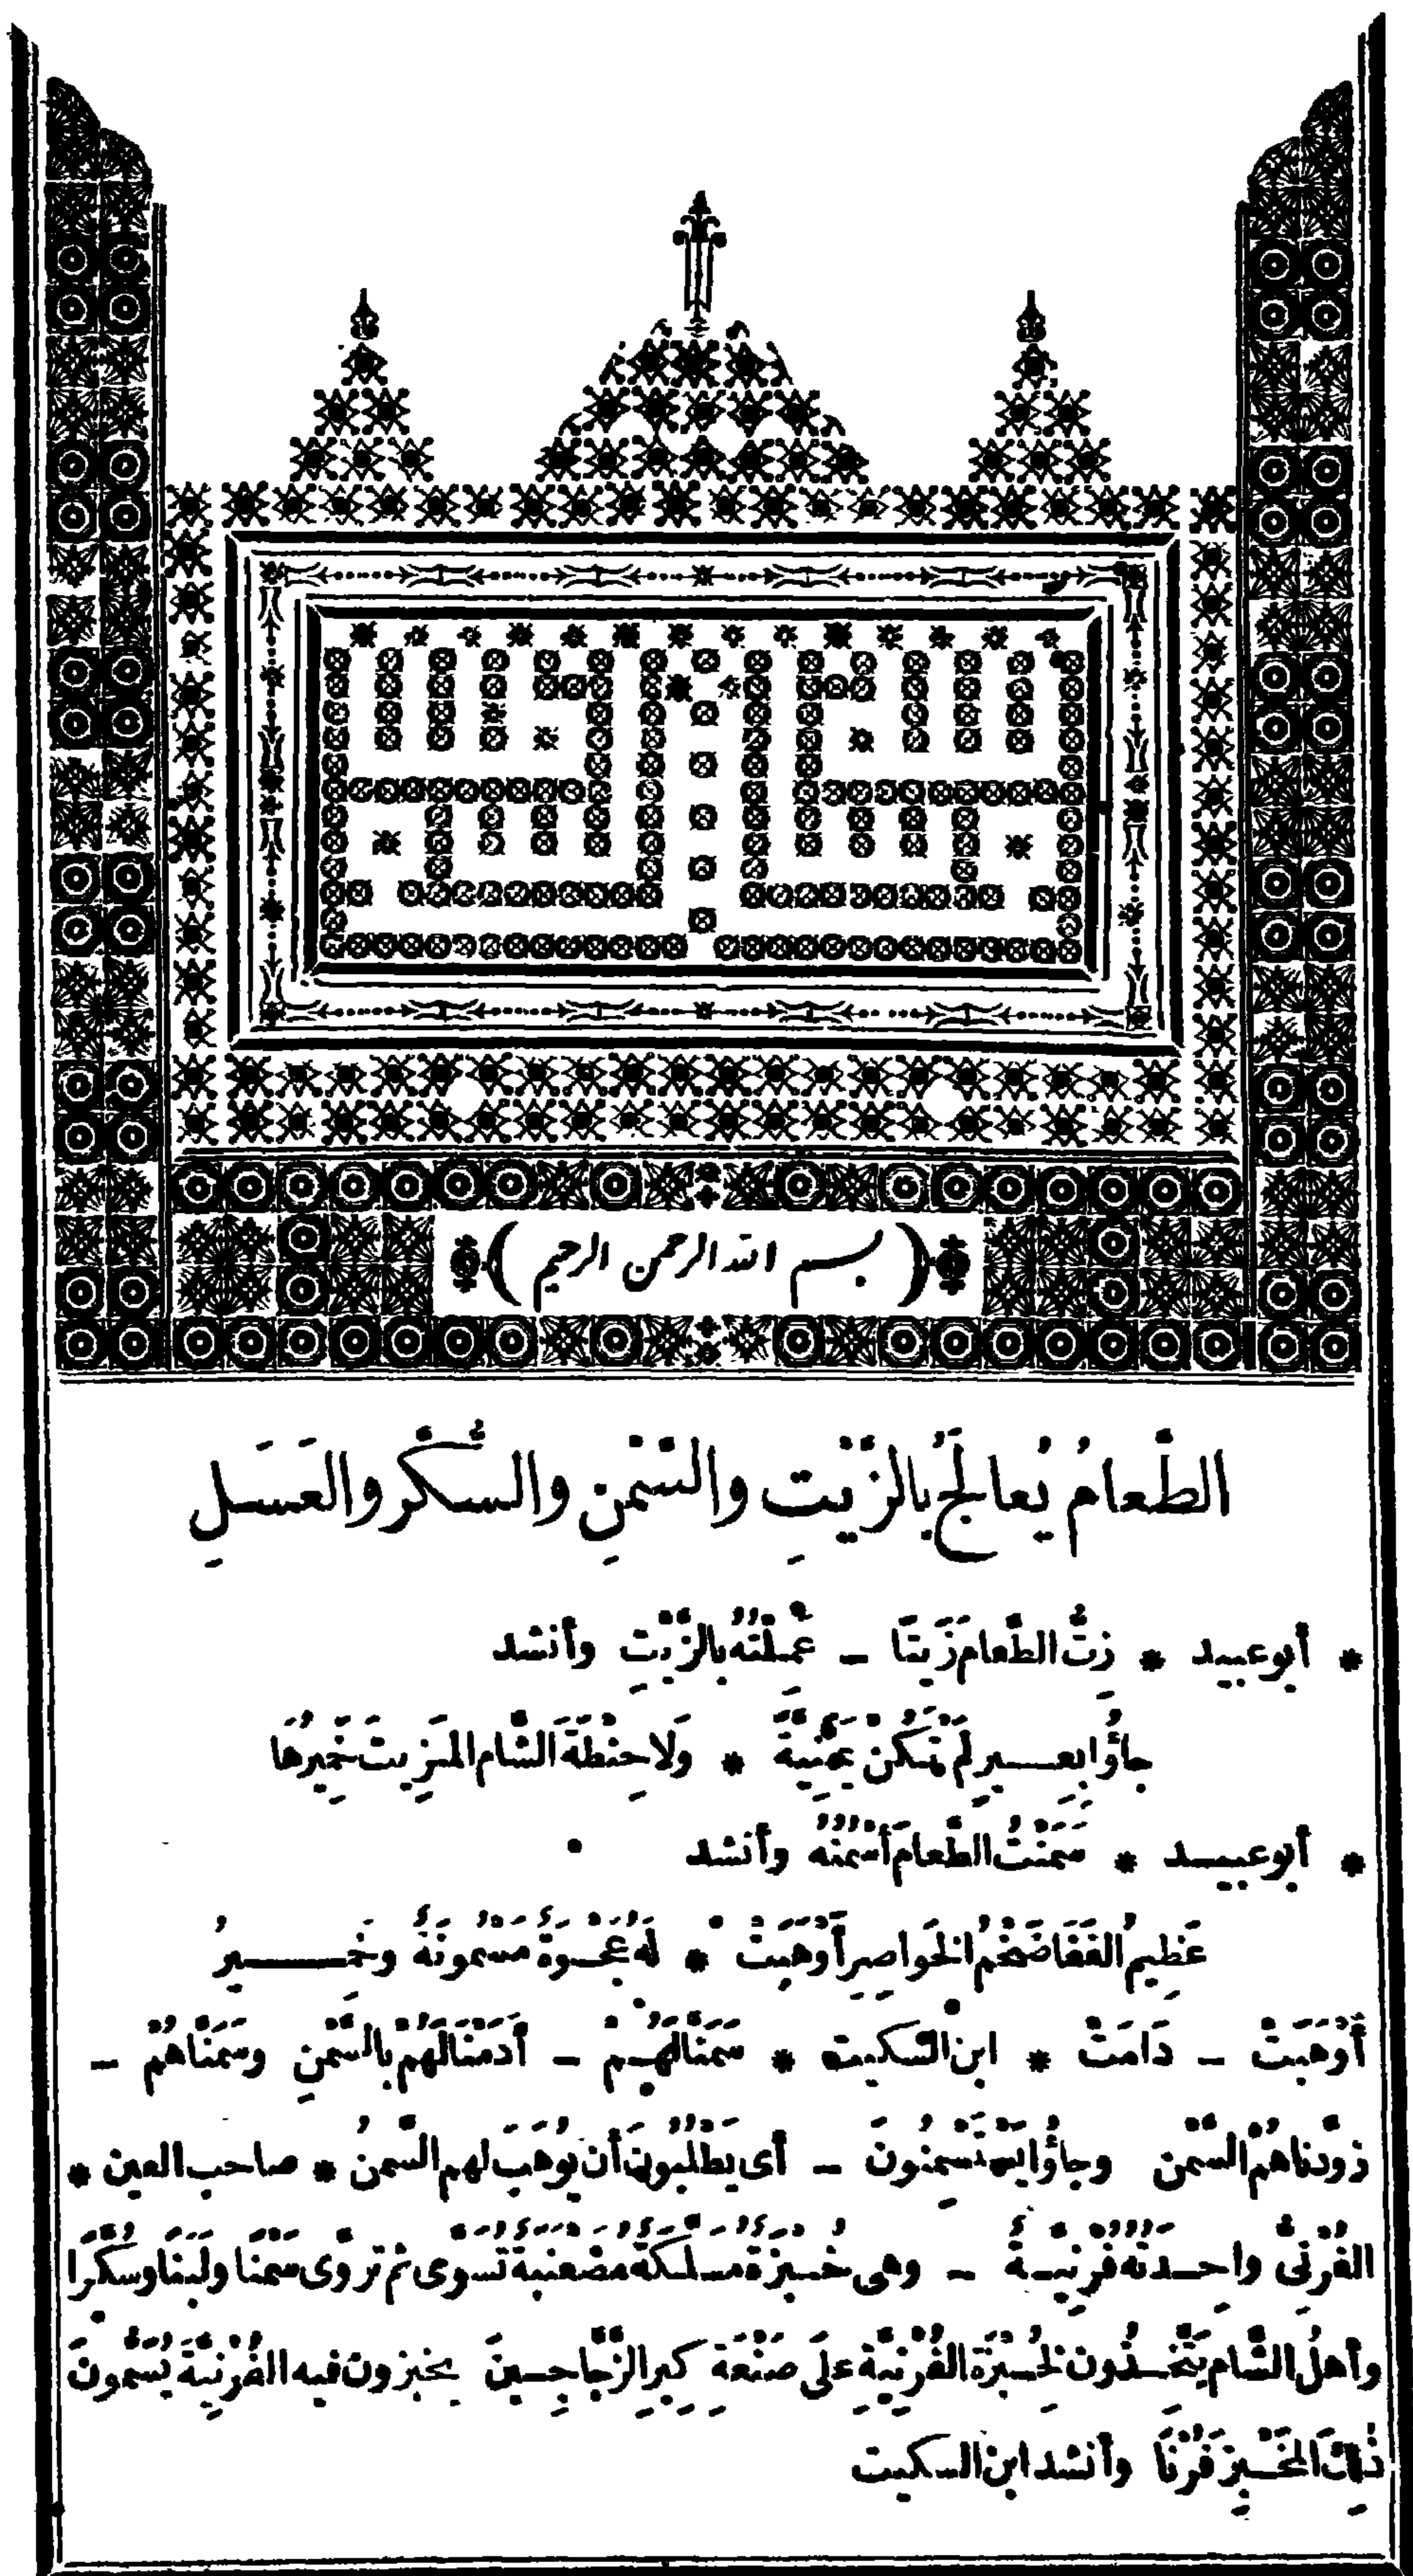 ﴿بسم الله الرحمن الرحيم﴾
الطَّعامُ يُعالَجُ بالزَّيْتِ والسَّمْنِ والسُّكَّر والعَسَلِ
* أبو عبيد * زِتُّ الطَّعامَ زَيتًا ـ عَمِلْتُهُ بالزَّيْتِ وأنشد
جاؤُا بِعِيرٍ لَمْ تَكُنْ يَمَنِيَّةً * وَلا حِنْطَةَ الشَّامِ المَزِيتَ خَمِيرُهَا
* أبو عبيد * سَمَنْتُ الطَّعامَ أَسْمُنُهُ وأنشد
عَظِيمُ القَفَا ضَخْمُ الخَواصِرِ أَوْهَبَتْ * لَهُ عَجْوَةٌ مَسْمُونَةٌ وخَمِيرُ
أَوْهَبَتْ ـ دَامَتْ * ابن السّكيت * سَمَنَّا لَهُمْ ـ أَدَمْنَا لَهُمْ بالسَّمْنِ وسَمَّنَّاهُمْ ـ
زَوَّدناهُمُ السَّمْن وجاؤُا يَسْتَسْمِنُونَ ـ أى يَطْلُبُونَ أن يُوهَبَ لهم السَّمنُ * صاحب العين *
الفُرْنِىُّ واحِدَتُهُ فُرْنِيَّةٌ ـ وهى خُبْزَةٌ مُسَلَّكَةٌ مُصَعْنَبَةٌ تُسَوَّى ثم تُرَوَّى سَمْنًا ولَبَنًا وسُكَّرًا
وأهلُ الشَّام يَتَّخِذُون لِخُبْزَةِ الفُرْنِيَّةِ عَلَى صَنْعَةِ كِيرِ الزَّجَّاجِينَ يخبزون فيه الفُرْنِيَّةَ يُسَمُّونَ
ذٰلِكَ المَخْبِزَ فُرْنًا وأنشد ابن السكيت